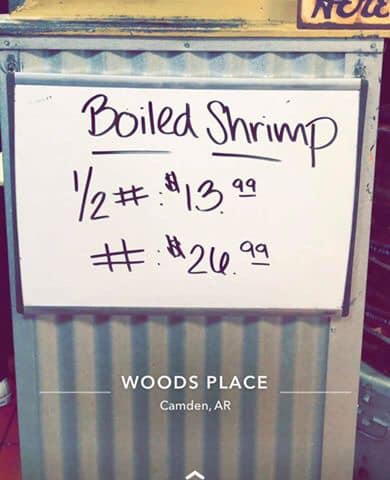 HERE
Boiled Shrimp
1/2 # : $13.99
# : $26.99
WOODS PLACE
Camden, AR